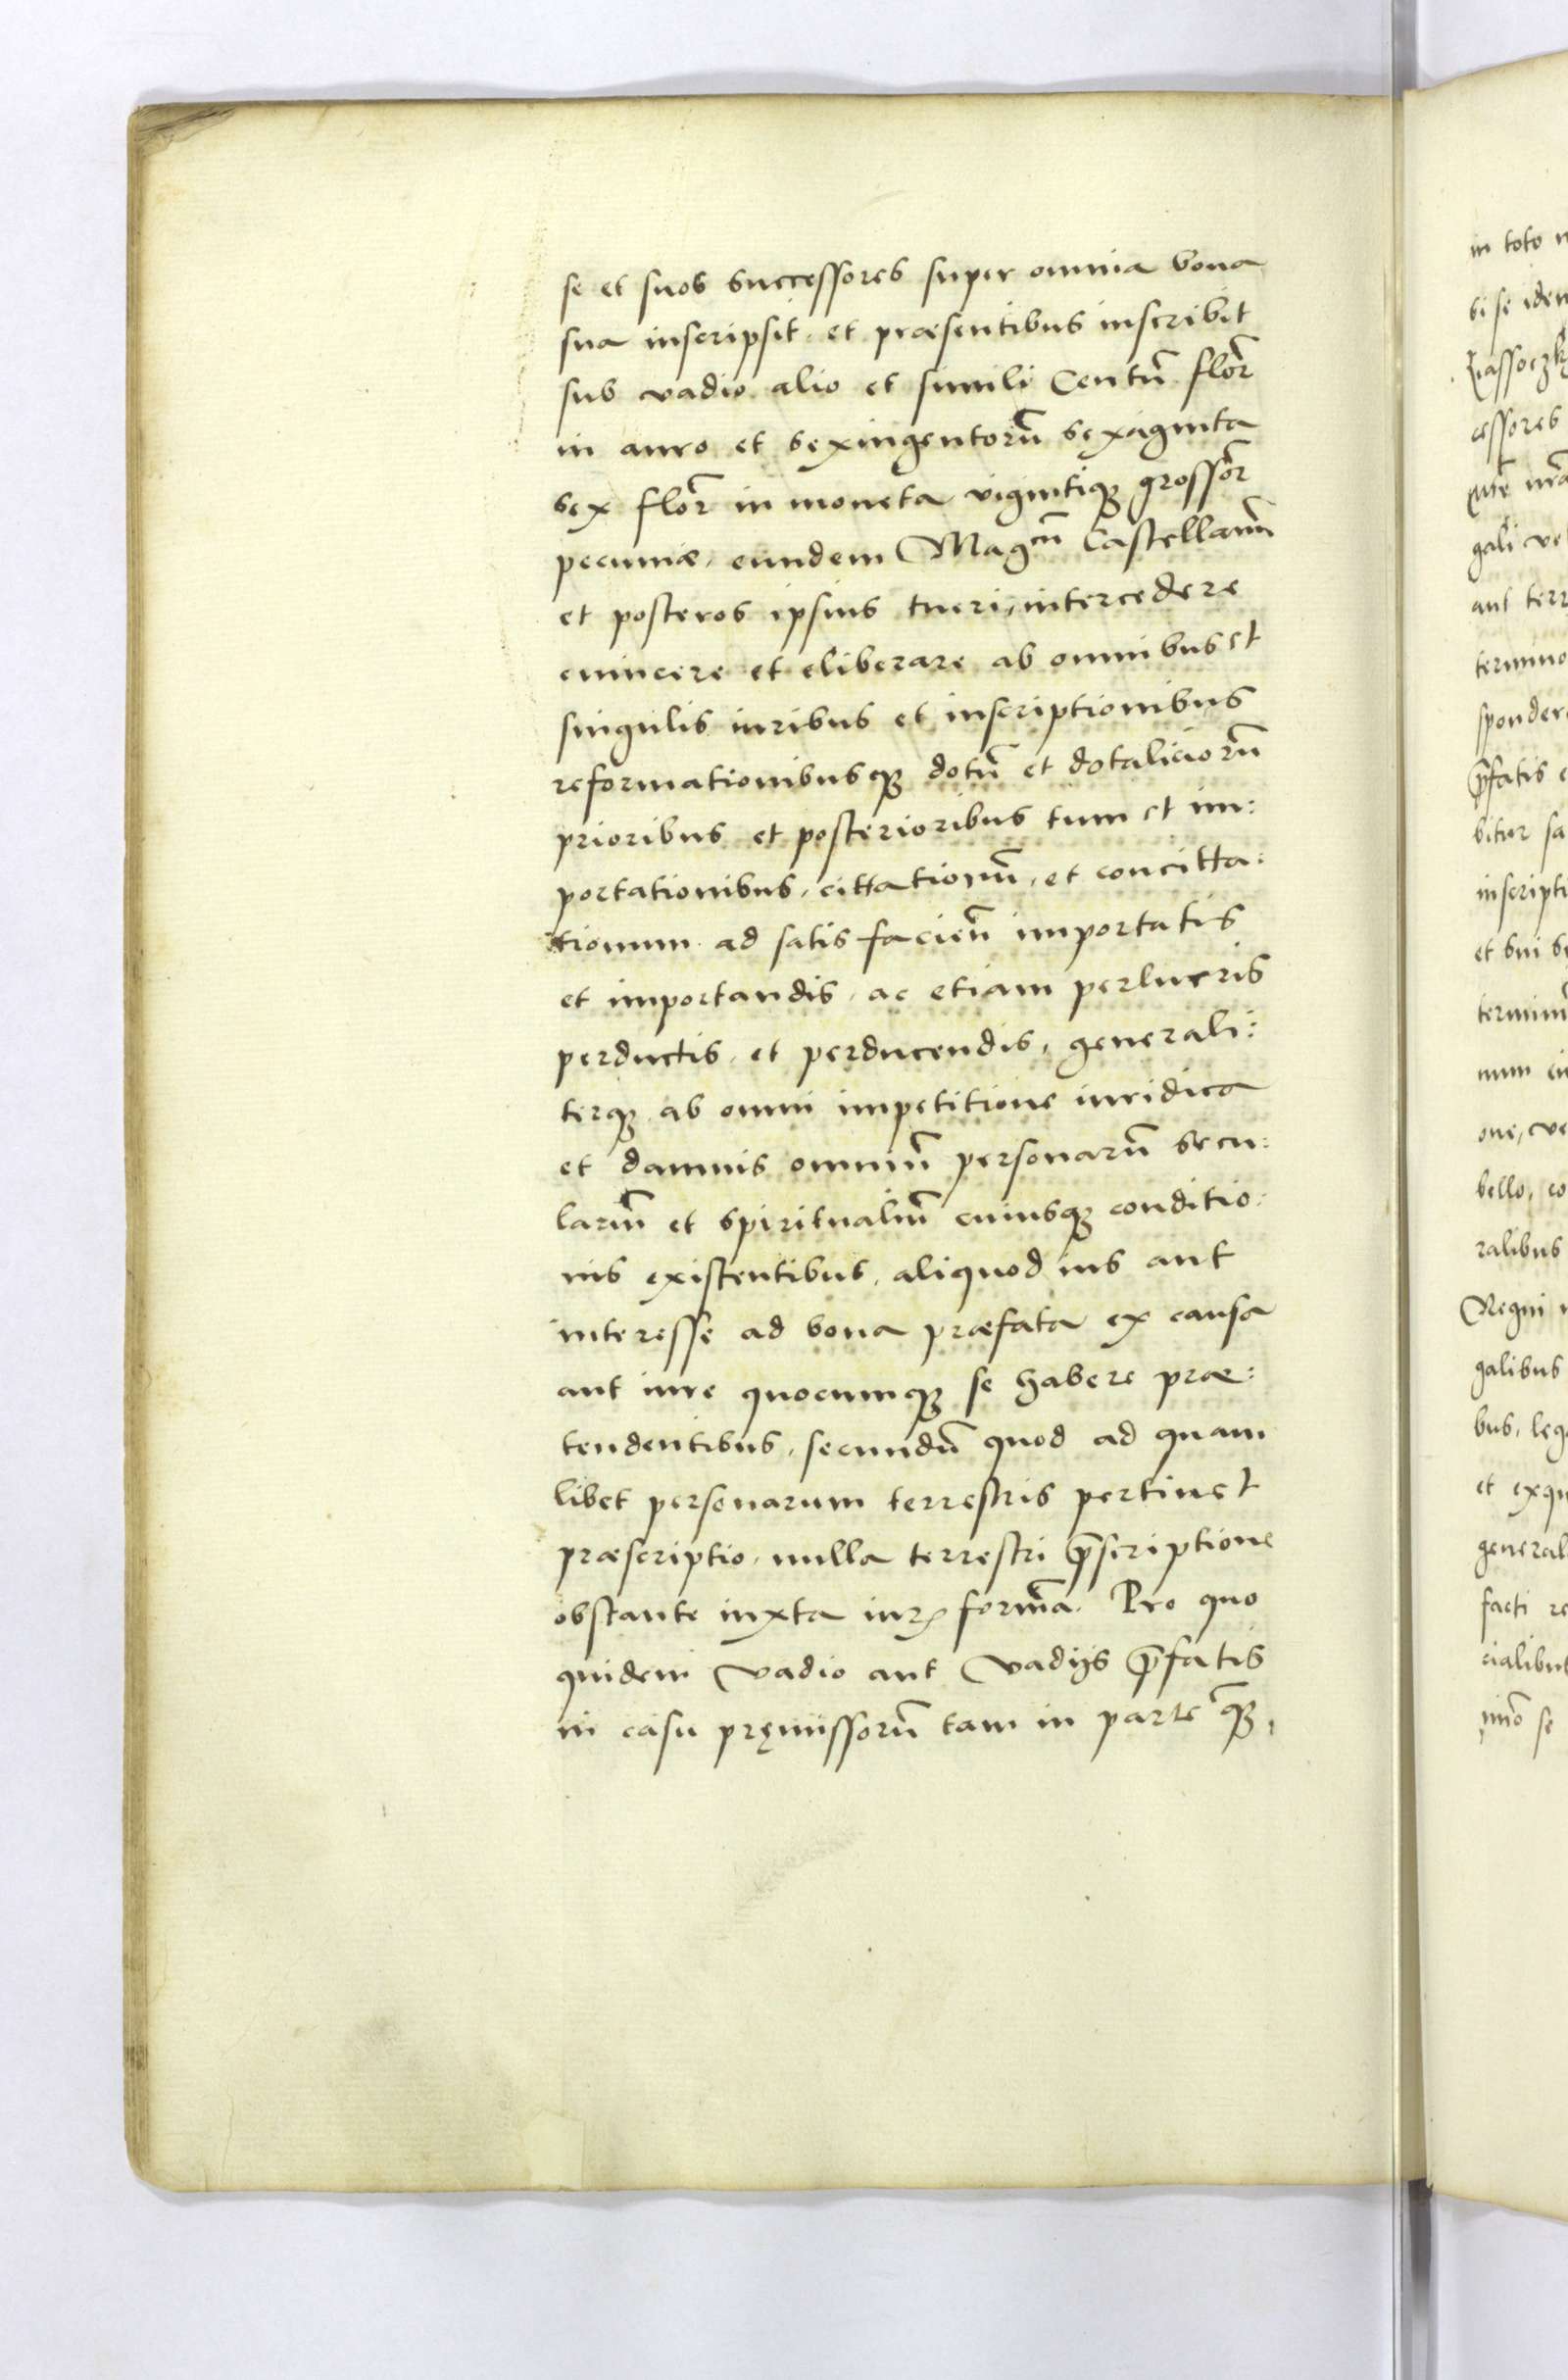 se et suos successores super omnia bona
sua inscripsit et præsentibus inscribit
sub vadio alio et simili Centũ flor̃
in auro et sexingentorũ sexaginta
sex flor̃ in moneta vigintiqꝫ grossor̃
pecuniæ, eundem Magcũ Castellanũ
et posteros ipsius tueri, intercedere
euincere et eliberare ab omnibus et
singulis iuribus et inscriptionibus
reformationibusqꝫ dotũ et dotaliciorũ
prioribus et posterioribus tum et im:
portationibus, cittationũ, et concitta:
tionum ad satis facien̄ importatis
et importandis, ac etiam perlucris
perductis, et perducendis, generali:
terqꝫ ab omni impetitione iuridica
et damnis omniũ personarũ secu:
lariũ et spiritualiũ cuiusqꝫ conditio:
nis existentibus, aliquod ius aut
interesse ad bona præfata ex causa
aut iure quocumqꝫ se habere præ:
tendentibus, secundũ quod ad quam
libet personarum terrestris pertinet
præscriptio, nulla terrestri p̄scriptione
obstante iuxta iurꝭ formã. Pro quo
quidem vadio aut vadijs p̄fatis
in casu pręmissorũ tam in parte q̄ꝫ,
in toto
bi se iden
cessores
gali ve
aut terr
termino
sponder
p̄fatis
bitur sa
inscripti
et sui s
num
one, ve
bello, co
ralibus
Regni
galibus
bus, leg
et exqu
general
facti re
cialibus